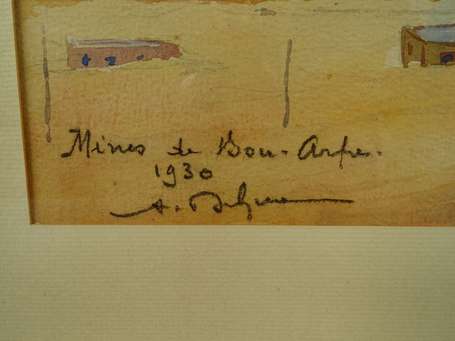 Mines de Bou-Arfa.
1930
A.